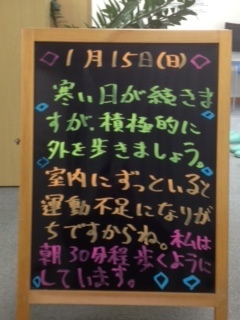 1月15日(日)
寒い日が続きま
すが、積極的に
外を歩きましょう。
室内にずっといると
運動不足になりが
ちですからね。私は
朝30分程歩くように
しています。